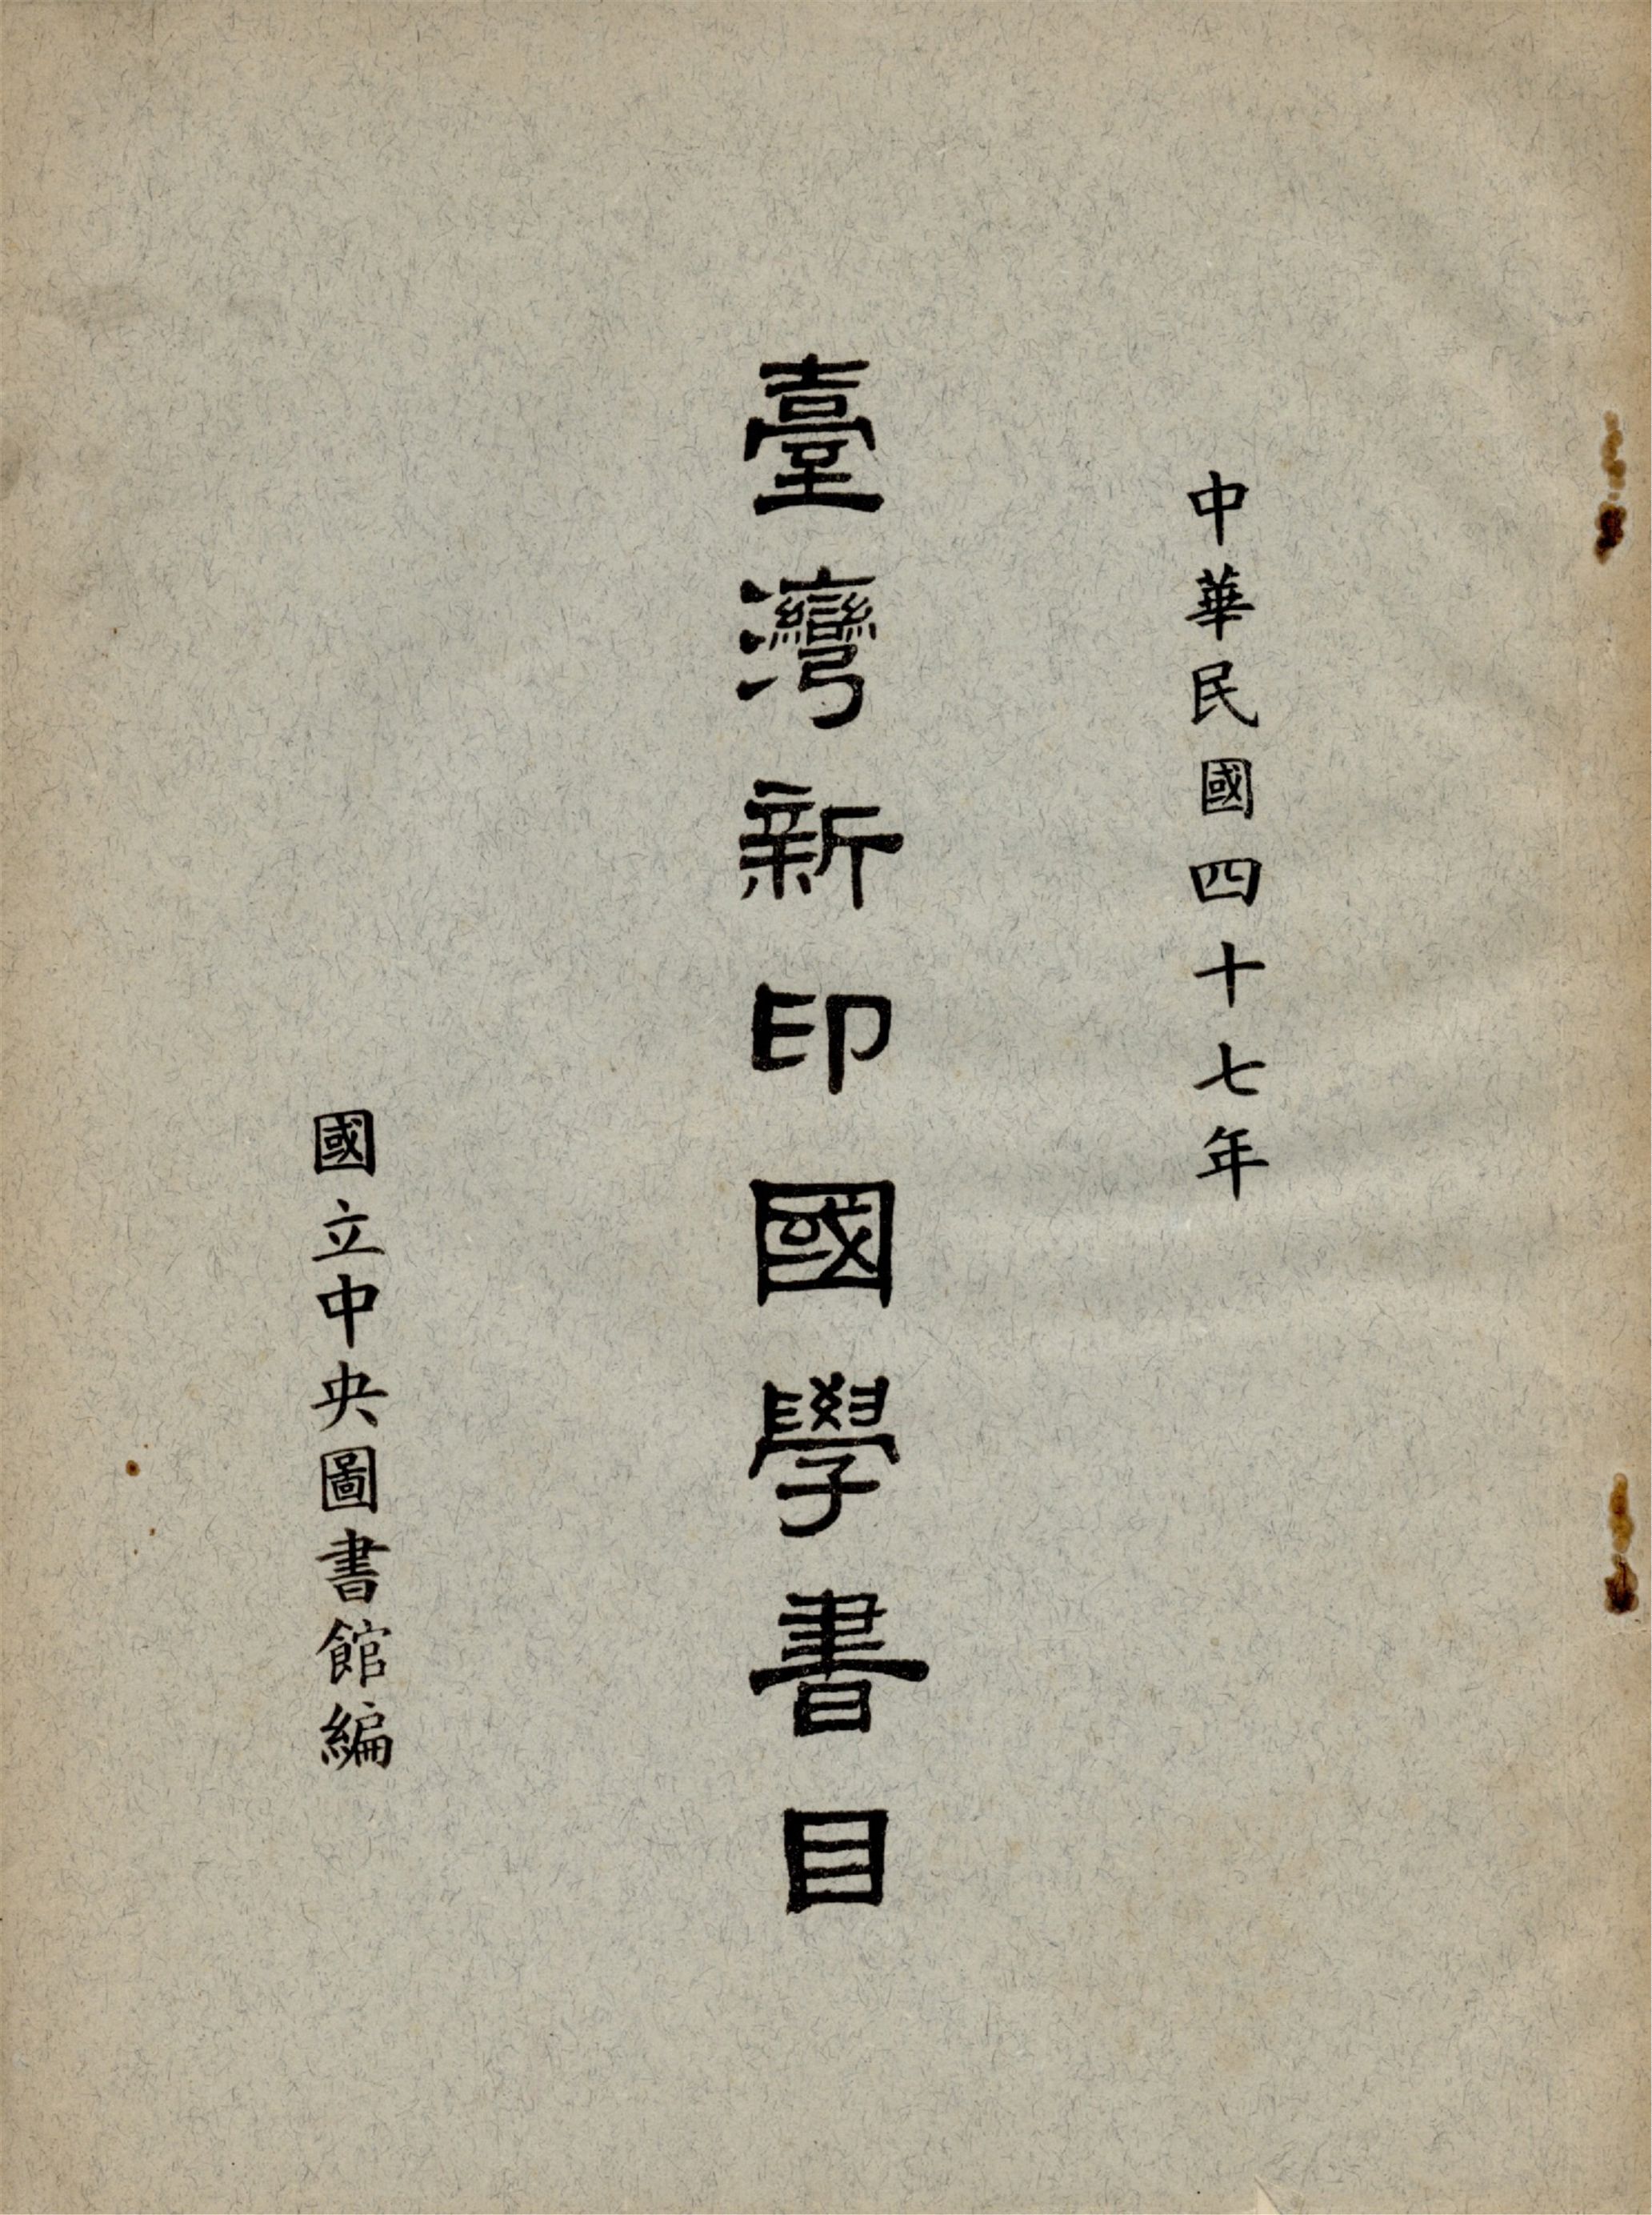 中華民國四十七年
臺灣新印國學書目
國立中央圖書館編